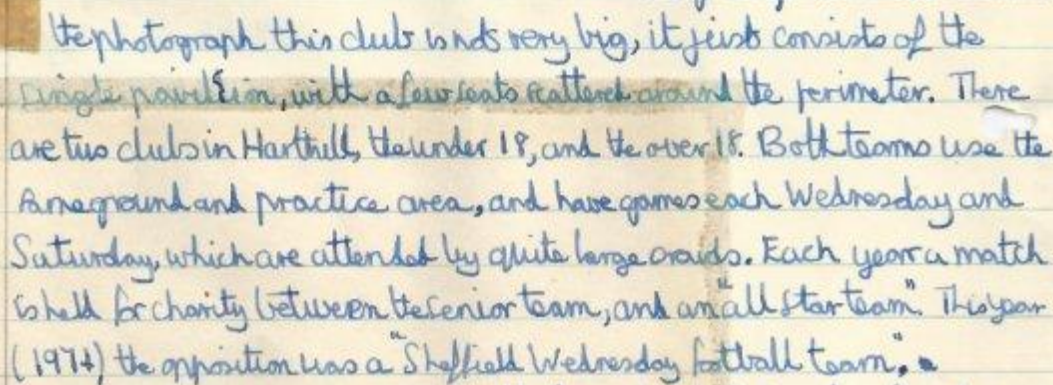 the photograph this club is not very big, it just consists of the
single pavillion, with a few seats scattered around the perimeter. There
are two clubs in Harthill, the under 18, and the over 18. Both teams use the
same ground and practice area, and have games each Wednesday and
Saturday, which are attended by quite large crowds. Each year a match
is held for charity between the senior team, and an "all star team". This year
(1974) the opposition was a "Sheffield Wednesday football team".